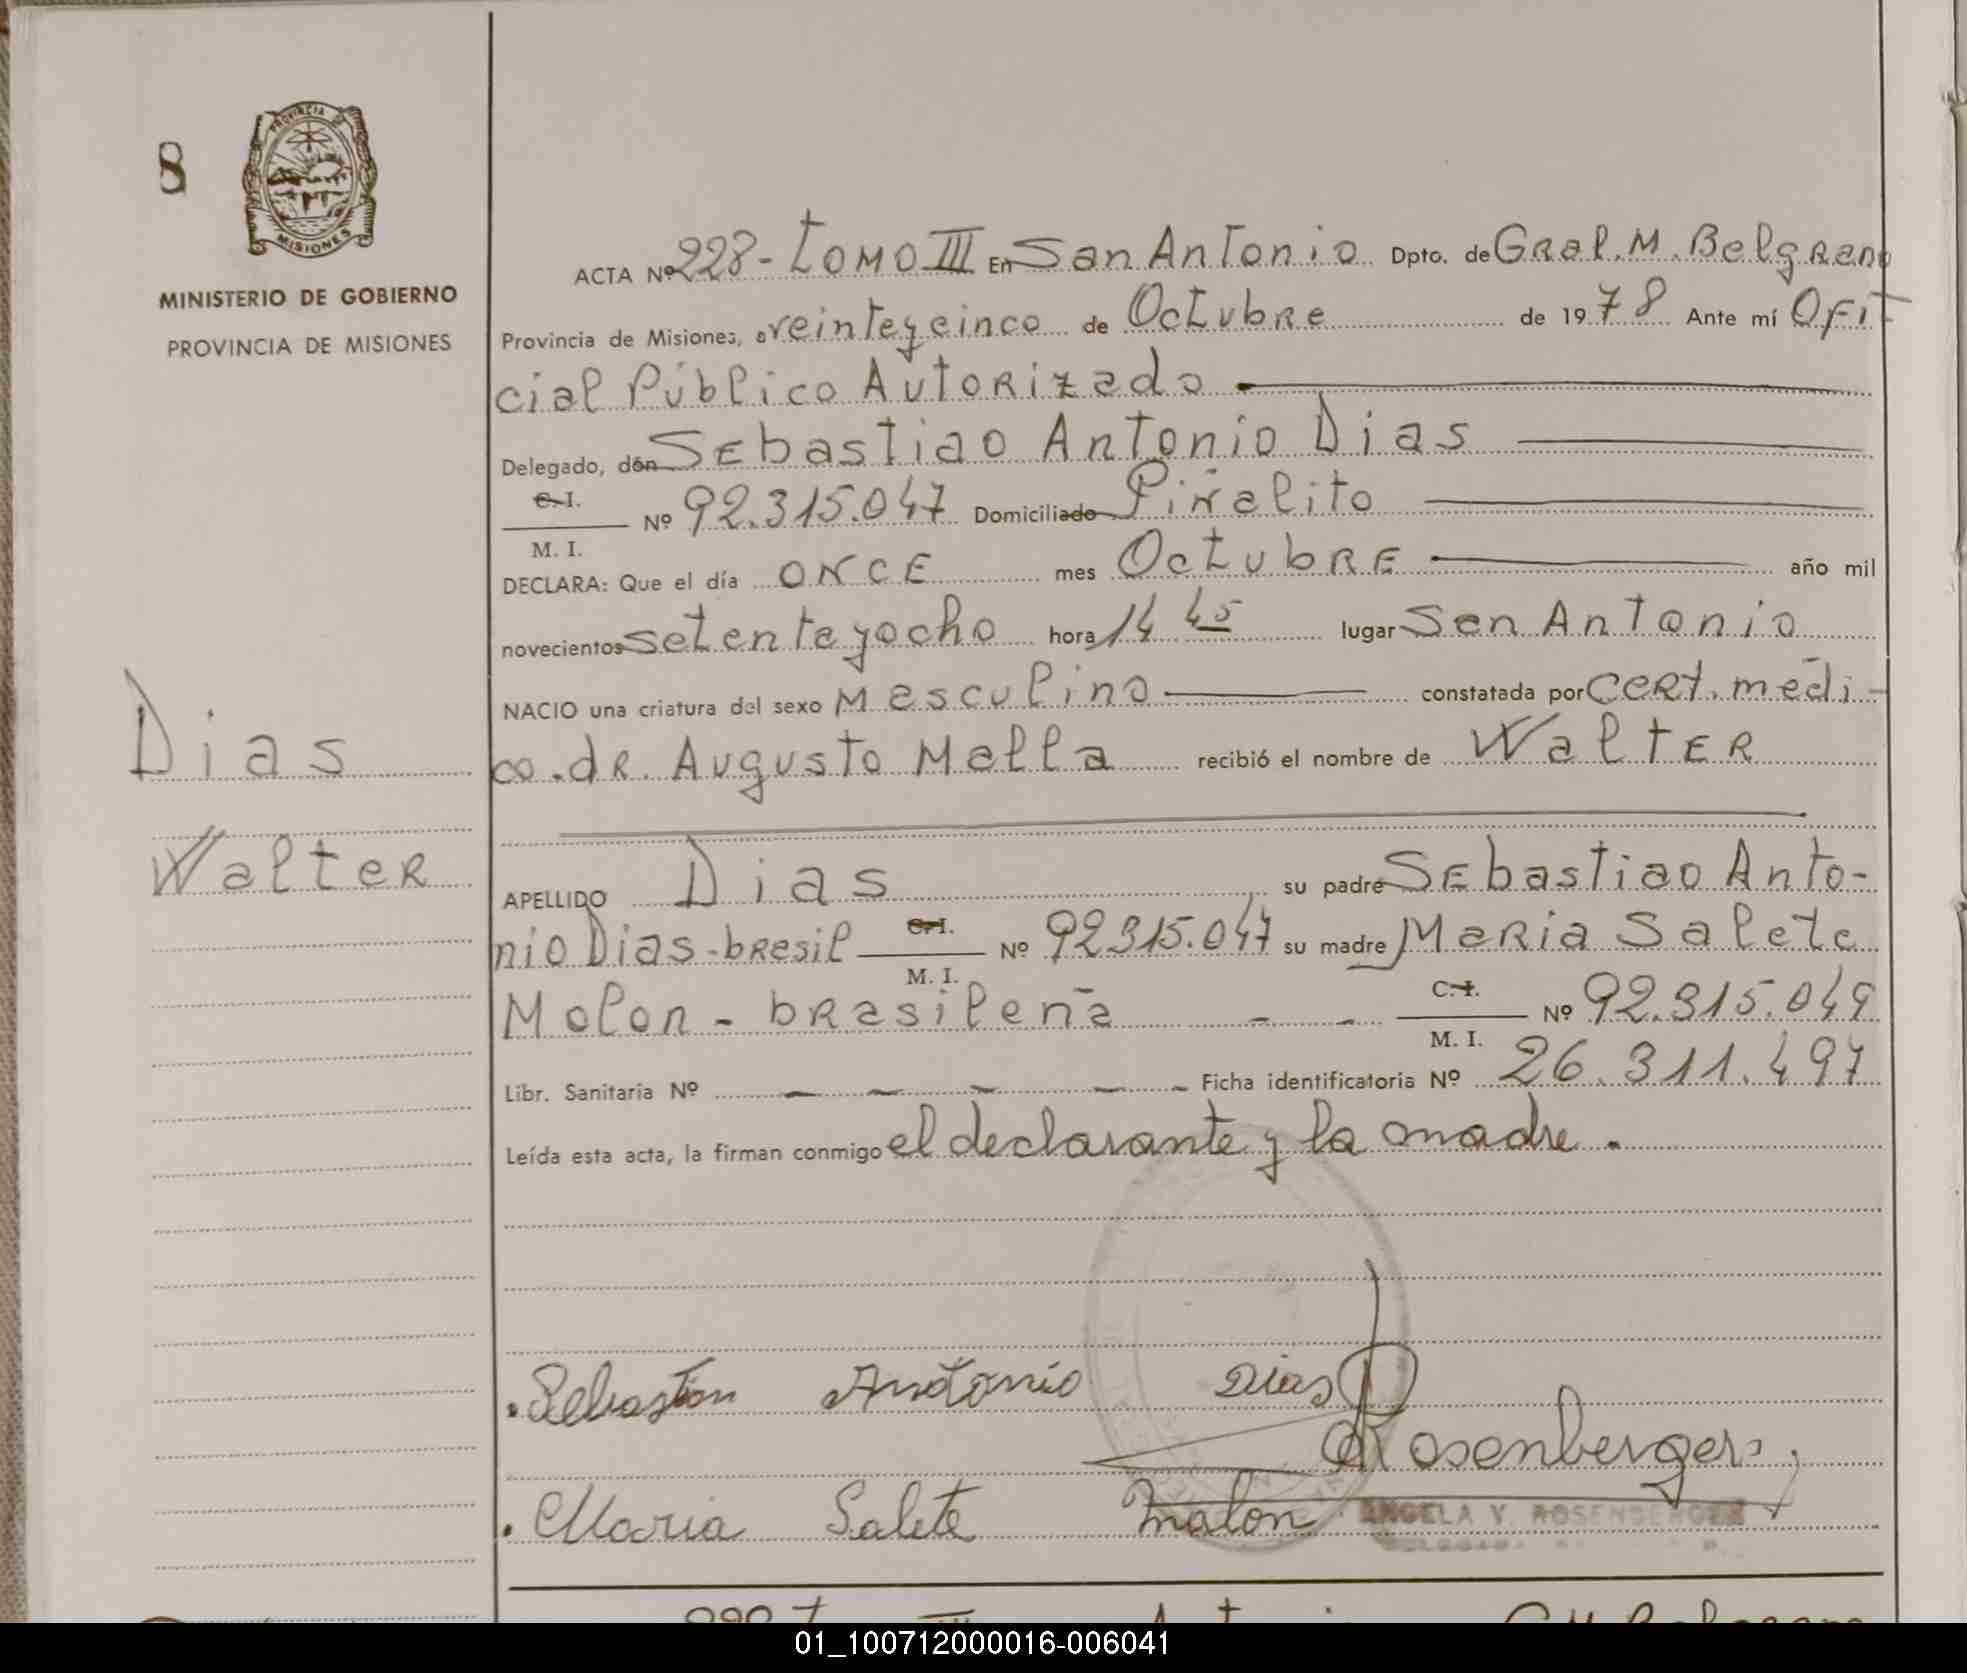 8
PROVINCIA DE
MISIONES
MINISTERIO DE GOBIERNO
PROVINCIA DE MISIONES
Dias
Walter
ACTA Nº 228- tomo III En San Antonio Dpto. de Gral. M. Belgrano
Provincia de Misiones, a veinteycinco de Octubre de 1978 Ante mí Ofi
cial Público Autorizado
Delegado, dón Sebastiao Antonio Dias
C.I.
Nº 92.315.047 Domiciliado Piñalito
M. I.
DECLARA: Que el día once mes Octubre año mil
novecientos setentayocho hora 14 45 lugar San Antonio
NACIO una criatura del sexo Masculino constatada por cert. médi-
co.dr. Augusto Mella recibió el nombre de Walter
APELLIDO Dias su padre Sebastiao Anto-
nio Dias-brasil C.I. Nº 92.315.047 su madre Maria Salete
M. I.
Molon - brasileña - - C.I. Nº 92.315.049
M. I.
Libr. Sanitaria Nº - - - - - Ficha identificatoria Nº 26.311.497
Leída esta acta, la firman conmigo el declarante y la madre.
.Sebastion Antonio Dias
Rosenberger
.Maria Salete Malon
ANGELA V. ROSENBERGER
01_100712000016-006041